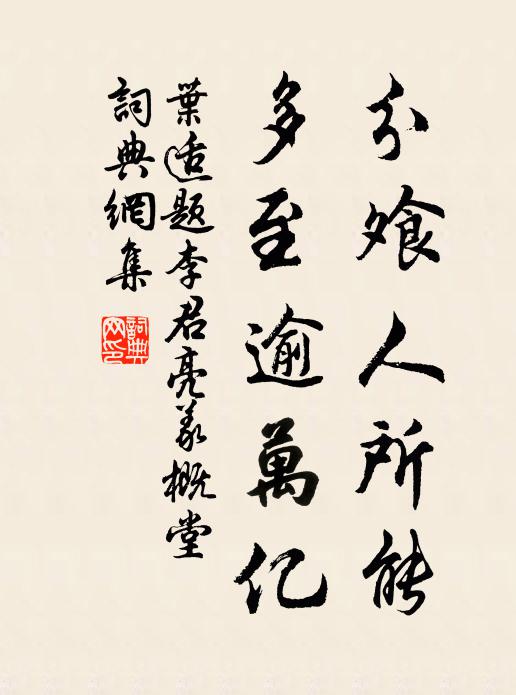 分飧人所能
多至逾萬亿
葉适題李君亮義概堂
詞典網集
詞典網印